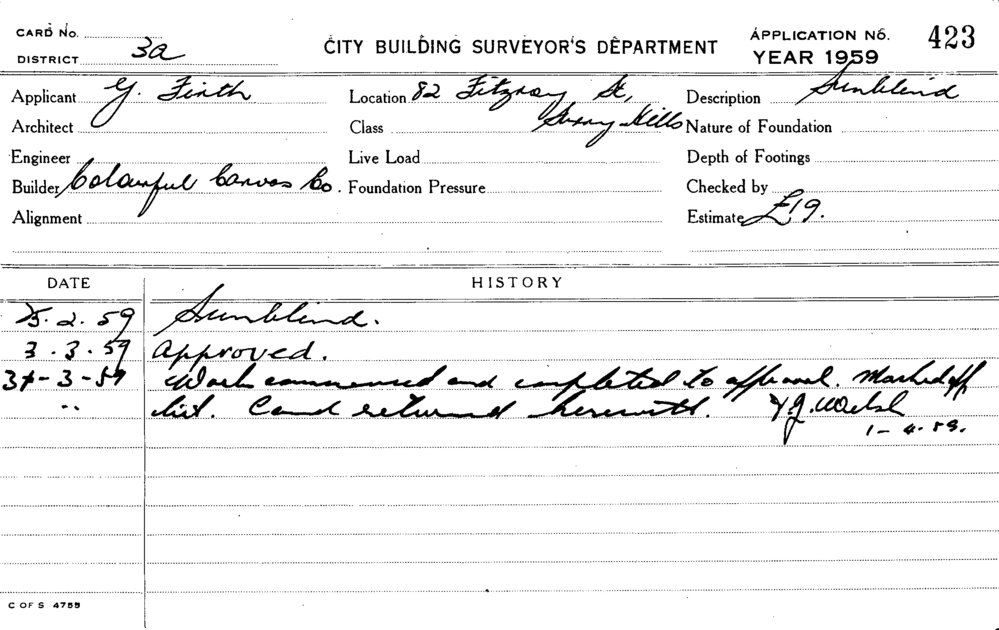 CARD No.
DISTRICT 3a
CITY BUILDING SURVEYOR'S DEPARTMENT
APPLICATION No. 423
YEAR 1959
Applicant G. Firth
Location 82 Fitzroy St,
Description Sunblind
Architect
Class Surry Hills
Nature of Foundation
Engineer
Live Load
Depth of Footings
Builder Colourful Canvas Co.
Foundation Pressure
Checked by
Alignment
Estimate £19.
DATE HISTORY
25.2.59 Sunblind.
3.3.59 Approved.
31-3-59 Work commenced and completed to approval. Marked off
" list. Card returned herewith. Welsh
1-4-59.
C OF S 4755